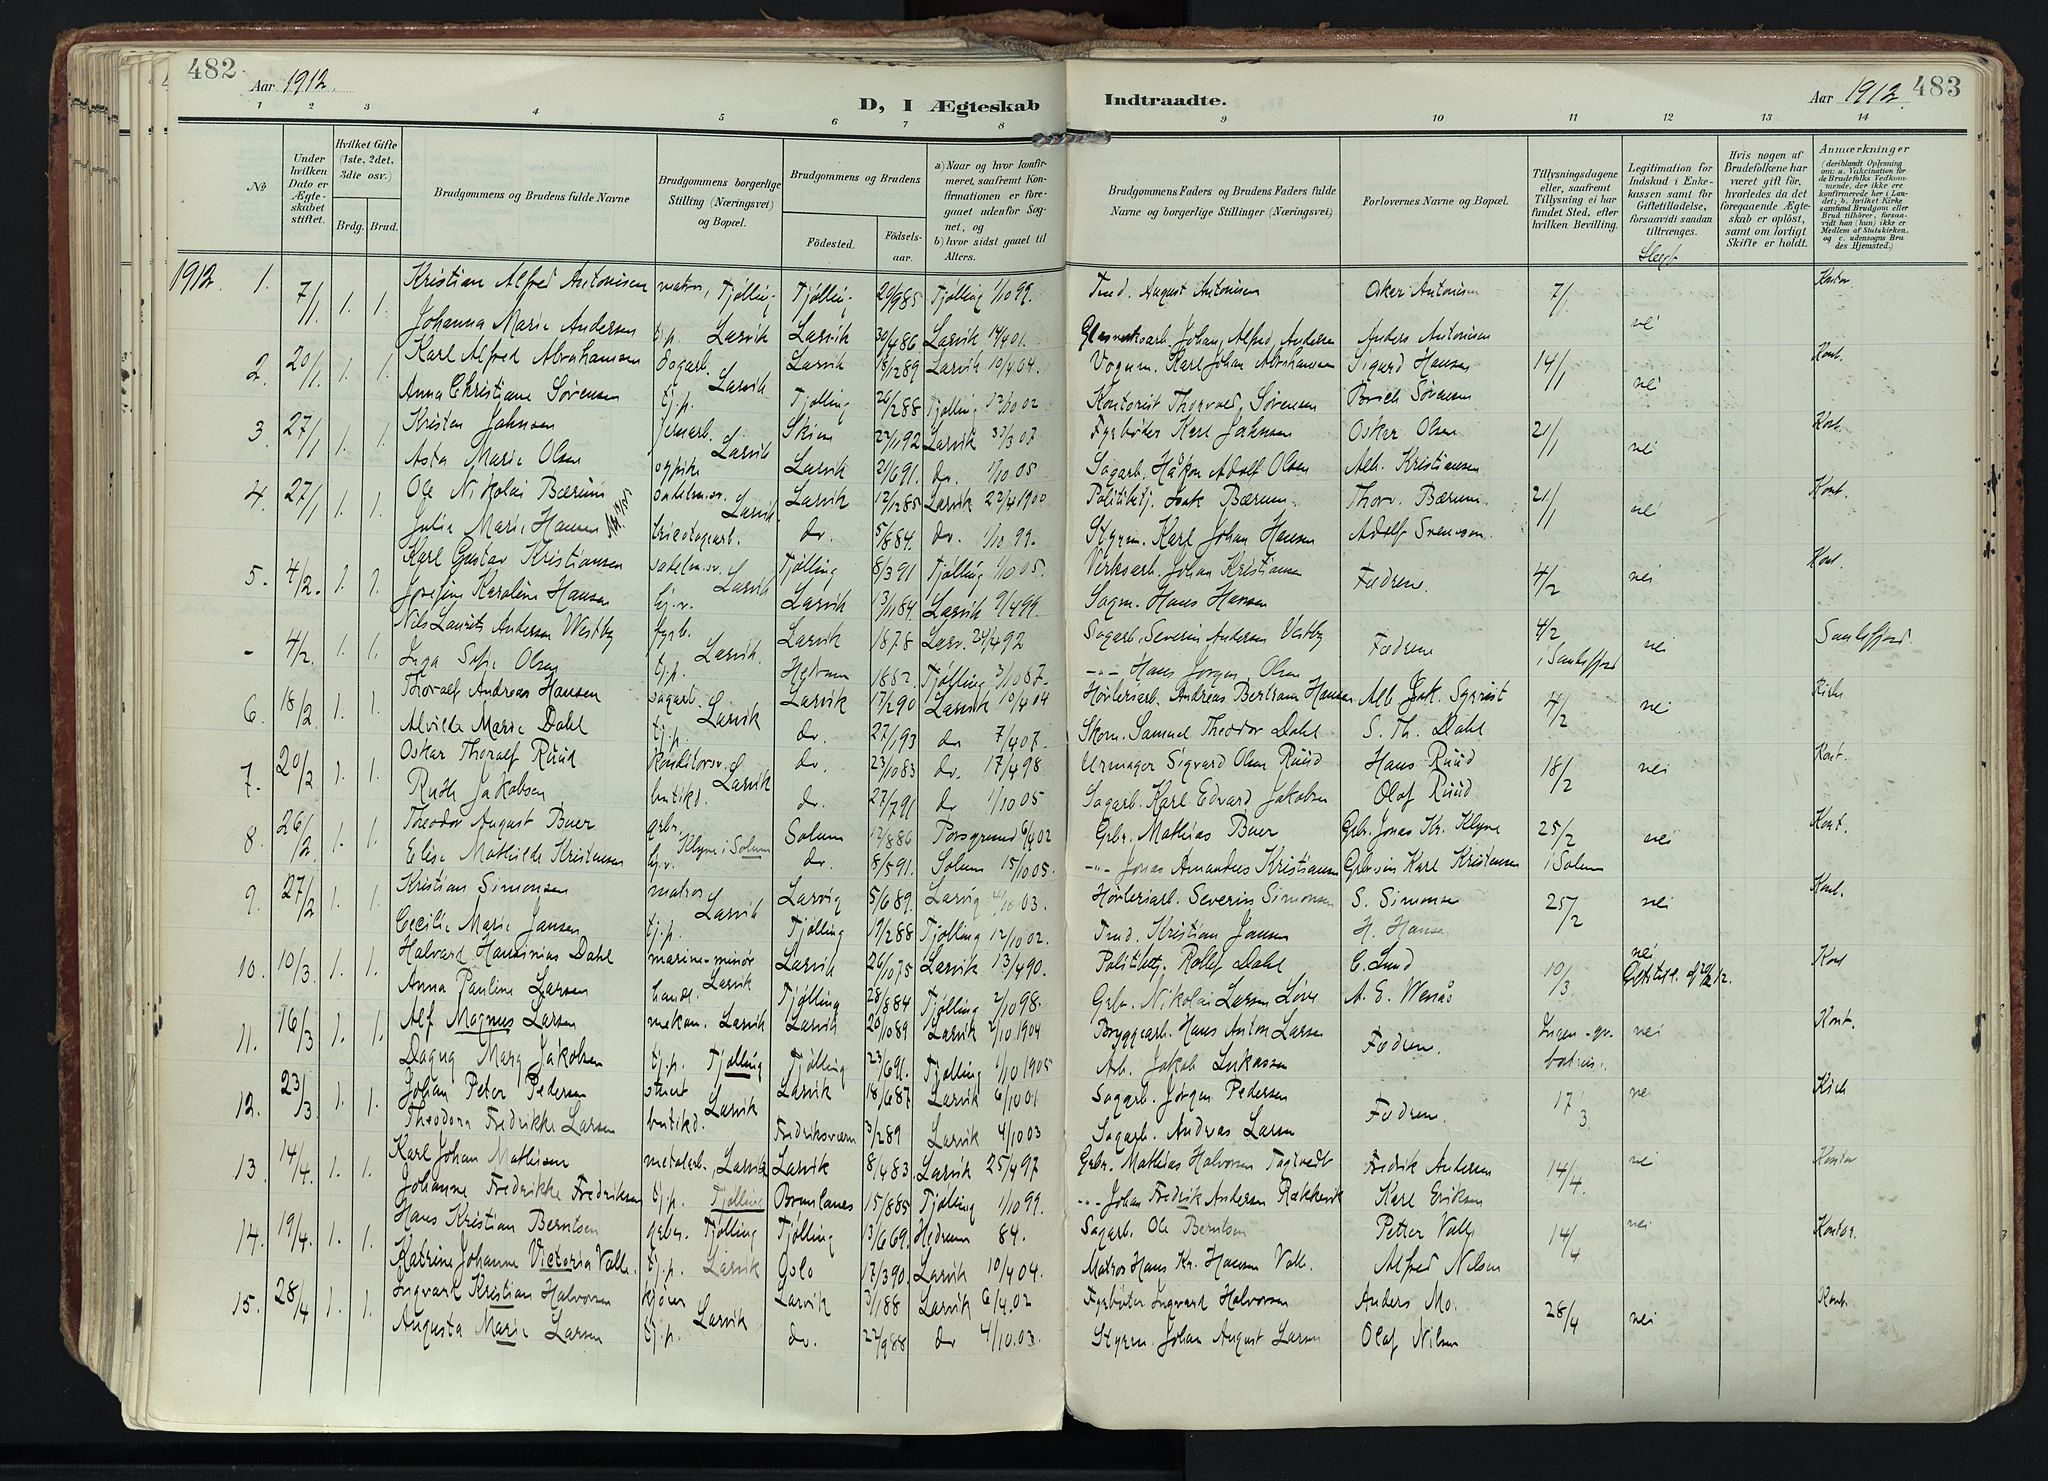 482
Aar 1912.
D, I Ægteskab
Indtraadte.
Aar 1912.
483
1 2 3 4 5 6 7 8
9 10 11 12 13 14
No
Under hvilken Dato er Ægteskabet stiftet.
Hvilket Gifte (1ste, 2det, 3die osv.)
Brdg. Brud.
Brudgommens og Brudens fulde Navne
Brudgommens borgerlige Stilling (Næringsvei) og Bopæl.
Brudgommens og Brudens
Fødested.
Fødselsaar.
a) Naar og hvor konfirmeret, saafremt Konfirmationen er foregaaet udenfor Sognet, og
b) hvor sidst gaaet til Alters.
Brudgommens Faders og Brudens Faders fulde Navne og borgerlige Stillinger (Næringsvei)
Forlovernes Navne og Bopæl.
Tillysningsdagene eller, saafremt Tillysning ei har fundet Sted, efter hvilken Bevilling.
Legitimation for Indskud i Enkekassen samt for Giftetilladelse, forsaavidt saadan tiltrænges.
Hvis nogen af Brudefolkene har været gift før, hvorledes da det foregaaende Ægteskab er opløst, samt om lovligt Skifte er holdt.
Anmærkninger (deriblandt Oplysning om: a. Vaccination for de Brudefolks Vedkommende, der ikke ere konfirmerede her i Landet; b. hvilket Kirkesamfund Brudgom eller Brud tilhører, forsaavidt han (hun) ikke er Medlem af Statskirken, og c. udensogns Brudes Hjemsted.)
Slegt
1912. 1. 7/1 1. 1. Kristian Alfred Antonisen matros, Tjølling Tjølling 29/985 Tjølling 1/10 99. Tmd. August Antonisen Oskar Antonisen 7/1 Kontor
Johanna Marie Andersen tj.p. Larvik Larvik 30/486 Larvik 14/4 01. Glasverksarb. Johan Alfred Andersen Anders Antonisen nei
2. 20/1 1. 1. Karl Alfred Abrahamsen Larvik 18/1289 Larvik 10/4 04. Vognm. Karl Johan Abrahamsen Sigurd Hansen 14/1 Kont.
Anna Christiane Sørensen tj.p. Larvik Tjølling 20/288 Tjølling 12/10 02 Kontorist Thorvald Sørensen Sørensen nei
3. 27/1 1. 1. Kristen Johnsen jernarb. Skien 27/192 Larvik Fyrbøter Karl Johnsen Oskar Olsen 21/1 Kont.
Asta Marie Olsen Larvik Larvik 21/691. do. 1/10 05 Sagarb. Håkon Adolf Olsen Alb. Kristiansen nei
4. 27/1 1. 1. Ole Nikolai Bærum sadelm.sv. Larvik Larvik 12/1285 Larvik 22/4 1900 Politibtj. Isak Bærum Thorv. Bærum 21/1 Kont.
Julie Marie Hansen tricotagearb. do. 5/884. do. 1/10 99. Styrm. Karl Johan Hansen Adolf Svensson nei
5. 4/2. 1. 1. Karl Gustav Kristiansen sadelm.sv. Tjølling 8/391 Tjølling 1/10 05. Verksarb. Johan Kristiansen Fædrene. 4/2 nei Kont.
Josefine Karoline Hansen tj.p. Larvik Larvik 13/1184 Larvik 9/4 99. Sagm. Hans Hansen
- 4/2. 1. 1. Nils Laurits Andersen Westby fyrb. Larvik. Larvik 1878 Larv. 24/4 92 Sagarb. Severin Andersen Vestby Fædrene 4/2 i Sandefjord nei Sandefjord.
Inga Sofie Olsen tj.p. Hedrum 1882 Tjølling -"- Hans Jørgen Olsen
6. 18/2 1. 1. Thoralf Andreas Hansen sagarb. Larvik Larvik 17/290 Larvik 10/4 04 Høvleriarb. Andreas Bertram Hansen Alb. Jak. Syqvist 4/2 nei Kirk.
Alvilde Marie Dahl tj.p. do. 27/193 do 7/4 07. Skom. Samuel Theodor Dahl S. Th. Dahl
7. 20/2 1. 1. Oskar Thoralf Ruud konditorsv. Larvik do. 23/1083 do. 17/4 98 Urmager Sigvard Olsen Ruud Hans Ruud 18/2 nei Kont.
Ruth Jakobsen butikd. do. 27/791 do 1/10 05 Sagarb. Karl Edvard Jakobsen Olaf Ruud
8. 26/2 1. 1. Theodor August Buer grbr. Klyve i Solum Solum 12/886 Porsgrund 6/4 02 Grbr. Mathias Buer Grbr. Jonas Kr. Klyve 25/2 i Solum nei Kont.
Elise Mathilde Kristensen do. 8/591. Solum 15/10 05. -"- Jonas Amandus Kristiansen Karl Kristensen
9. 27/2 1. 1. Kristian Simonsen matros Larvik Larvig 5/689. Larvig 4/10 03. Høvleriarb. Severin Simonsen S. Simonse 25/2 nei Kont.
Cecilie Marie Jansen tj.p. Tjølling 19/288 Tjølling 12/10 02. Tmd. Kristian Jansen H. Hansen
10. 10/3 1. 1. Halvard Hansinius Dahl marine-minør Larvik Larvik 26/1075 Larvik 13/4 90. Politibtj. Rolf Dahl C. Lund 10/3 nei Kont
Anna Pauline Larsen handl. Tjølling 28/884 Tjølling 2/10 98. Grbr. Nikolai Larsen Løve A. E. Wersås
11. 16/3 1. 1. Alf Magnus Larsen mekan. Larvik Larvik 20/1089 Larvik 2/10 1904 Bryggearb. Hans Anton Larsen Fædrene. nei Kont.
Dagny Marg. Jakobsen tj.p. Tjølling Tjølling 23/691. Tjølling 1/10 1905 Arb. Jakob Lukassen
12. 23/3 1. 1. Johan Peter Pedersen stuert Larvik Larvik 18/687 Larvik 6/10 01 Sagarb. Jørgen Pedersen Fædrene. 17/3 nei Kirk
Theodora Fredrikke Larsen butikd. Fredriksværn 3/289 Larvik 4/10 03 Sagarb. Andreas Larsen
13. 14/4. 1. 1. Karl Johan Mathisen metalarb. Larvik Larvik 8/483. Larvik 25/4 97 Grbr. Mathias Halvorsen Tagtvedt Fredrik Andersen 14/4. nei Kontor
Johanne Fredrikke Fredriksen tj.p. Tjølling Brunlanes 15/885 Tjølling 1/10 99. -"- Johan Fredrik Andersen Rækkevik Karl Eriksen
14. 19/4. 1. 1. Hans Kristian Berntsen grbr. Tjølling Tjølling 13/669. Hedrum 84. Sagarb. Ole Berntsen Petter Valle 14/4 nei Kontor.
Katrine Johanne Victoria Valle. tj.p. Larvik Oslo 17/390. Larvik 10/4 04. Matros Hans Kr. Hansen Valle. Alfred Nilsen
15. 28/4 1. 1. Ingvard Kristian Halvorsen kjører Larvik Larvik 3/188 Larvik 6/4 02 Fyrbøter Ingvard Halvorsen Anders Mo. 28/4 nei Kont.
Augusta Marie Larsen tj.p. do. 22/988 do 4/10 03. Styrm. Johan August Larsen Olaf Nilsen